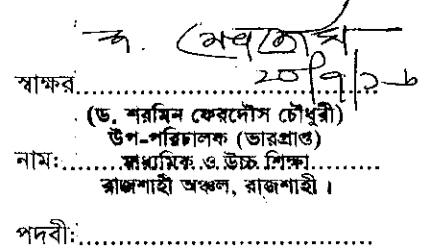 স্বাক্ষর
(ড. শরমিন ফেরদৌস চৌধুরী)
উপ-পরিচালক (ভারপ্রাপ্ত)
নাম: মাধ্যমিক ও উচ্চ শিক্ষা
রাজশাহী অঞ্চল, রাজশাহী।
পদবী: